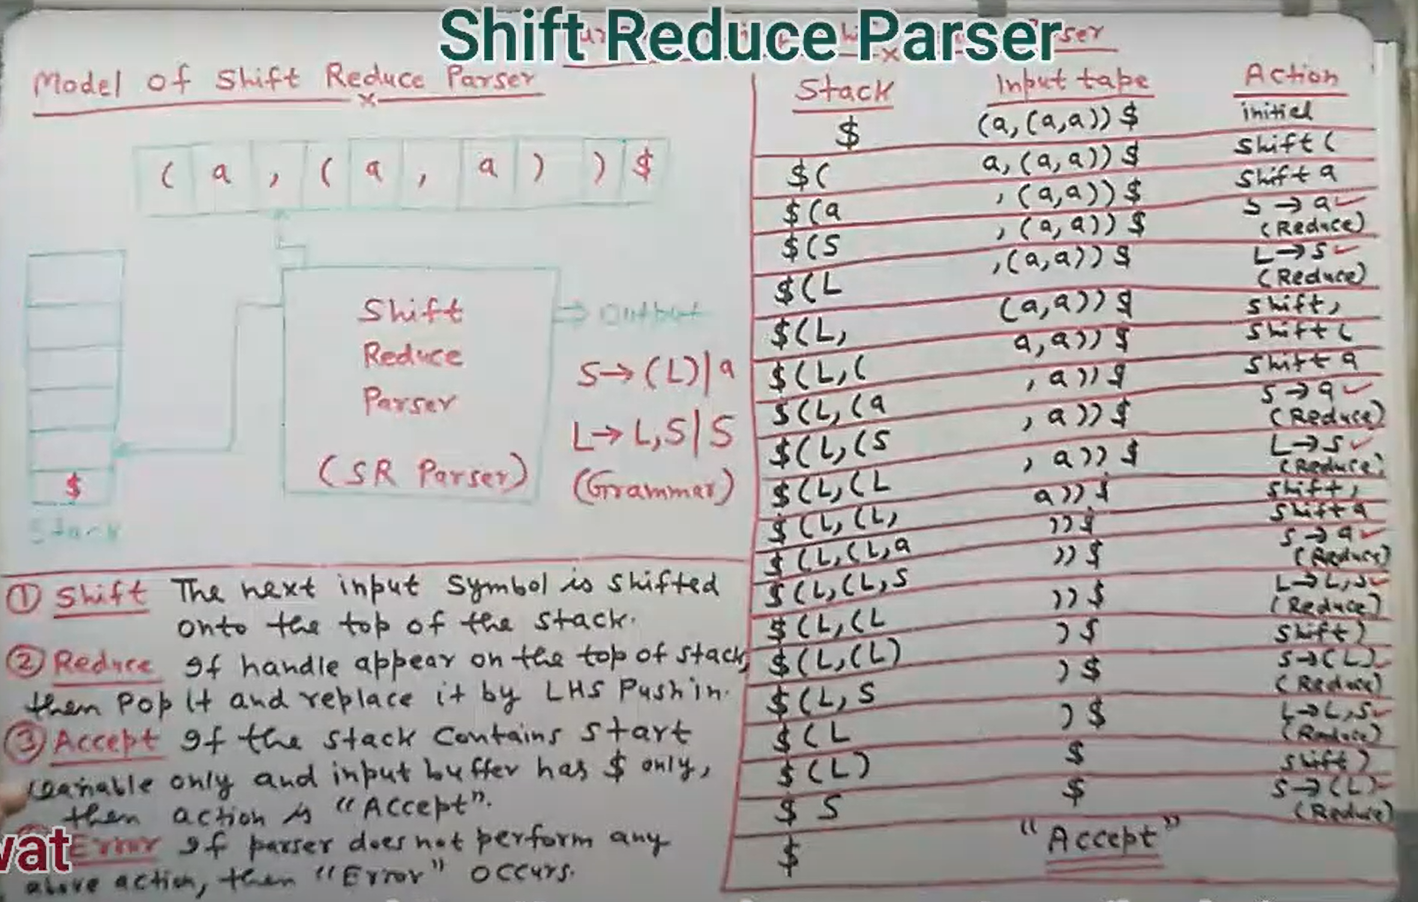 Shift Reduce Parser
Model of Shift Reduce Parser
( a , ( a , a ) ) $
Shift
Reduce
Parser
(SR Parser)
⇒ Output
S→(L)|a
L→L,S|S
(Grammar)
$
Stack
① Shift The next input symbol is shifted
onto the top of the stack.
② Reduce If handle appear on the top of stack,
then Pop it and replace it by LHS Push in.
③ Accept If the stack contains start
variable only and input buffer has $ only,
then action is "Accept".
Error If parser does not perform any
above action, then "Error" occurs.
vat
Stack Input tape Action
$ (a,(a,a))$ initial
$( a,(a,a))$ Shift (
$(a ,(a,a))$ Shift a
$(S ,(a,a))$ S→a✓
(Reduce)
$(L ,(a,a))$ L→S✓
(Reduce)
$(L, (a,a))$ Shift,
$(L,( a,a))$ Shift (
$(L,(a ,a))$ Shift a
$(L,(S ,a))$ S→a✓
(Reduce)
$(L,(L ,a))$ L→S✓
(Reduce)
$(L,(L, a))$ Shift,
$(L,(L,a ))$ Shift a
$(L,(L,S ))$ S→a✓
(Reduce)
$(L,(L ))$ L→L,S✓
(Reduce)
$(L,(L) )$ Shift )
$(L,S )$ S→(L)
(Reduce)
$(L )$ L→L,S✓
(Reduce)
$(L) $ Shift )
$ S $ S→(L)
(Reduce)
$ "Accept"